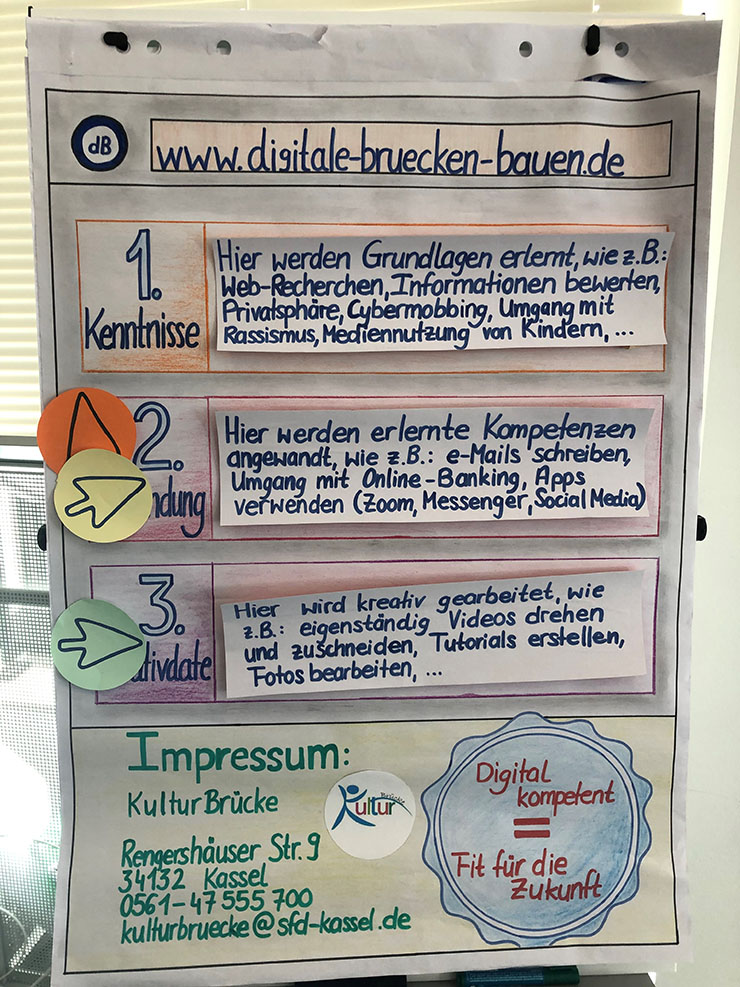 dB
www.digitale-bruecken-bauen.de
1.
Kenntnisse
Hier werden Grundlagen erlernt, wie z.B.:
Web-Recherchen, Informationen bewerten,
Privatsphäre, Cybermobbing, Umgang mit
Rassismus, Mediennutzung von Kindern, ...
2.
ndung
Hier werden erlernte Kompetenzen
angewandt, wie z.B.: e-Mails schreiben,
Umgang mit Online-Banking, Apps
verwenden (Zoom, Messenger, Social Media)
3.
ativdate
Hier wird kreativ gearbeitet, wie
z.B.: eigenständig Videos drehen
und zuschneiden, Tutorials erstellen,
Fotos bearbeiten, ...
Impressum:
KulturBrücke
Rengershäuser Str. 9
34132 Kassel
0561-47 555 700
kulturbruecke@sfd-kassel.de
Brücke
Kultur
Digital
kompetent
=
Fit für die
Zukunft